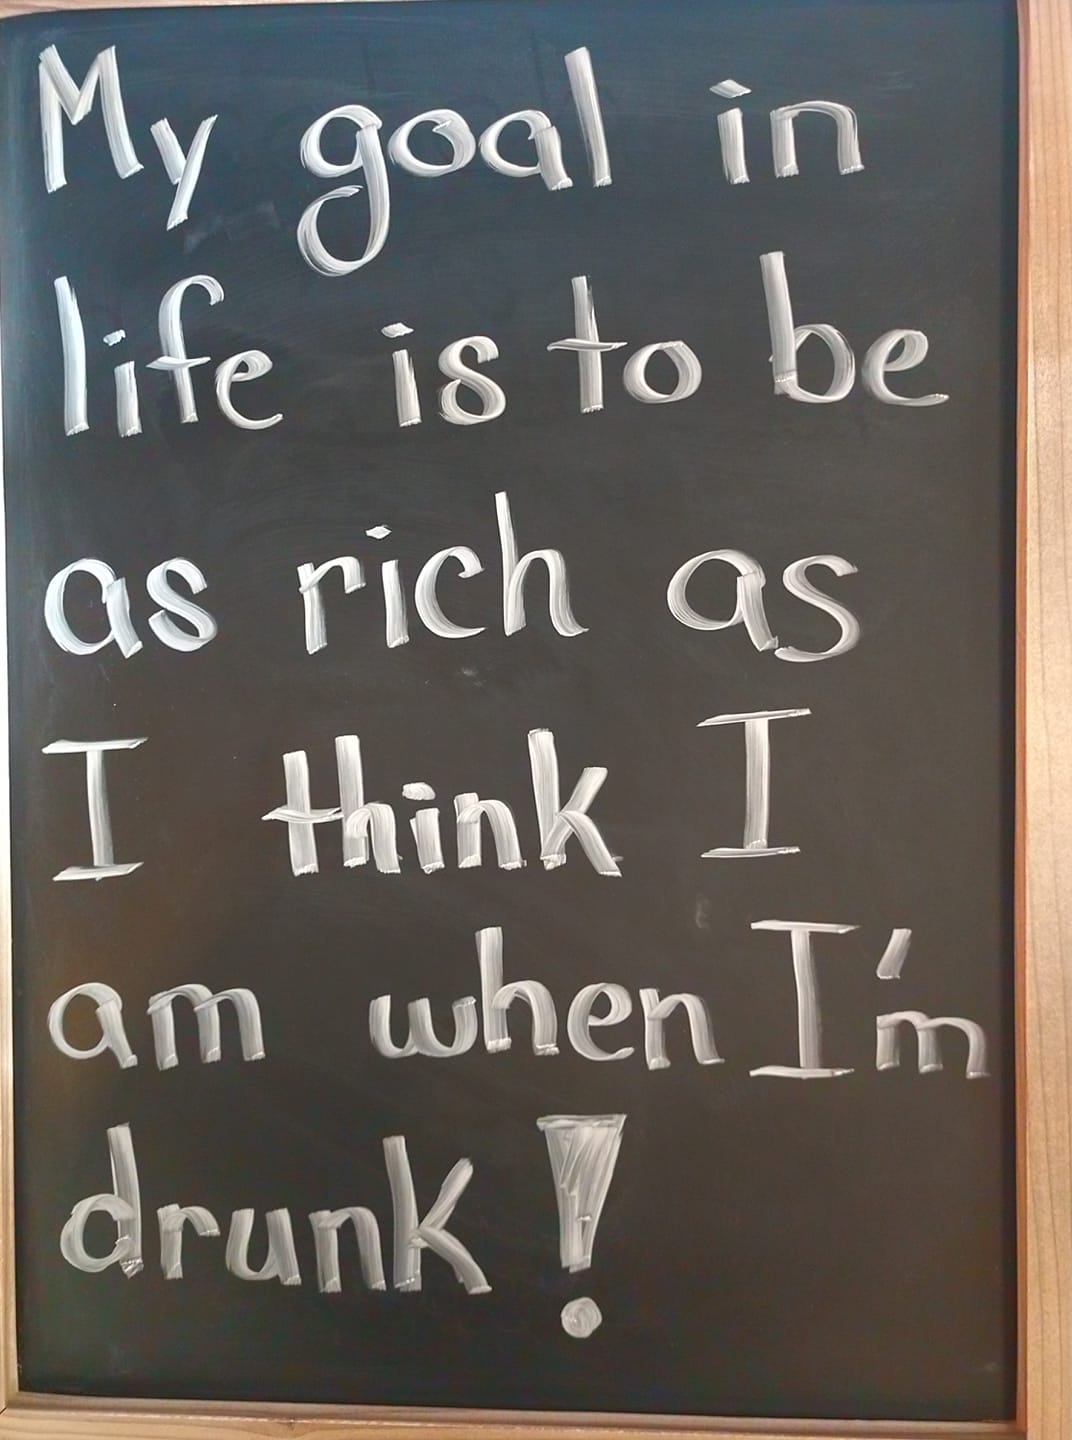 My goal in
life is to be
as rich as
I think I
am when I'm
drunk!